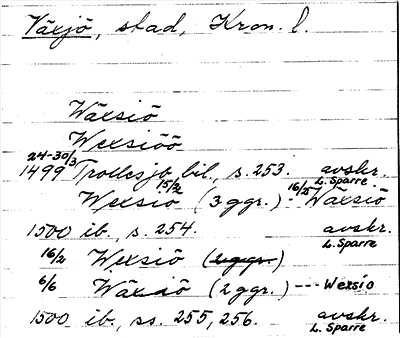 Växjö, stad, Kron. l.
Wäxsiö
Wexsiöö
24-30/3
1499 Trollesjb. bil., s. 253. avskr.
L. Sparre
Wexsiö 15/2 (3 ggr.) - 16/5 Wäxsiö
1500 ib., s. 254. avskr.
L. Sparre
16/2 Wexsiö (2 ggr.)
6/6 Wäxsiö (2 ggr.) --- Wexsio
1500 ib., ss. 255, 256. avskr.
L. Sparre